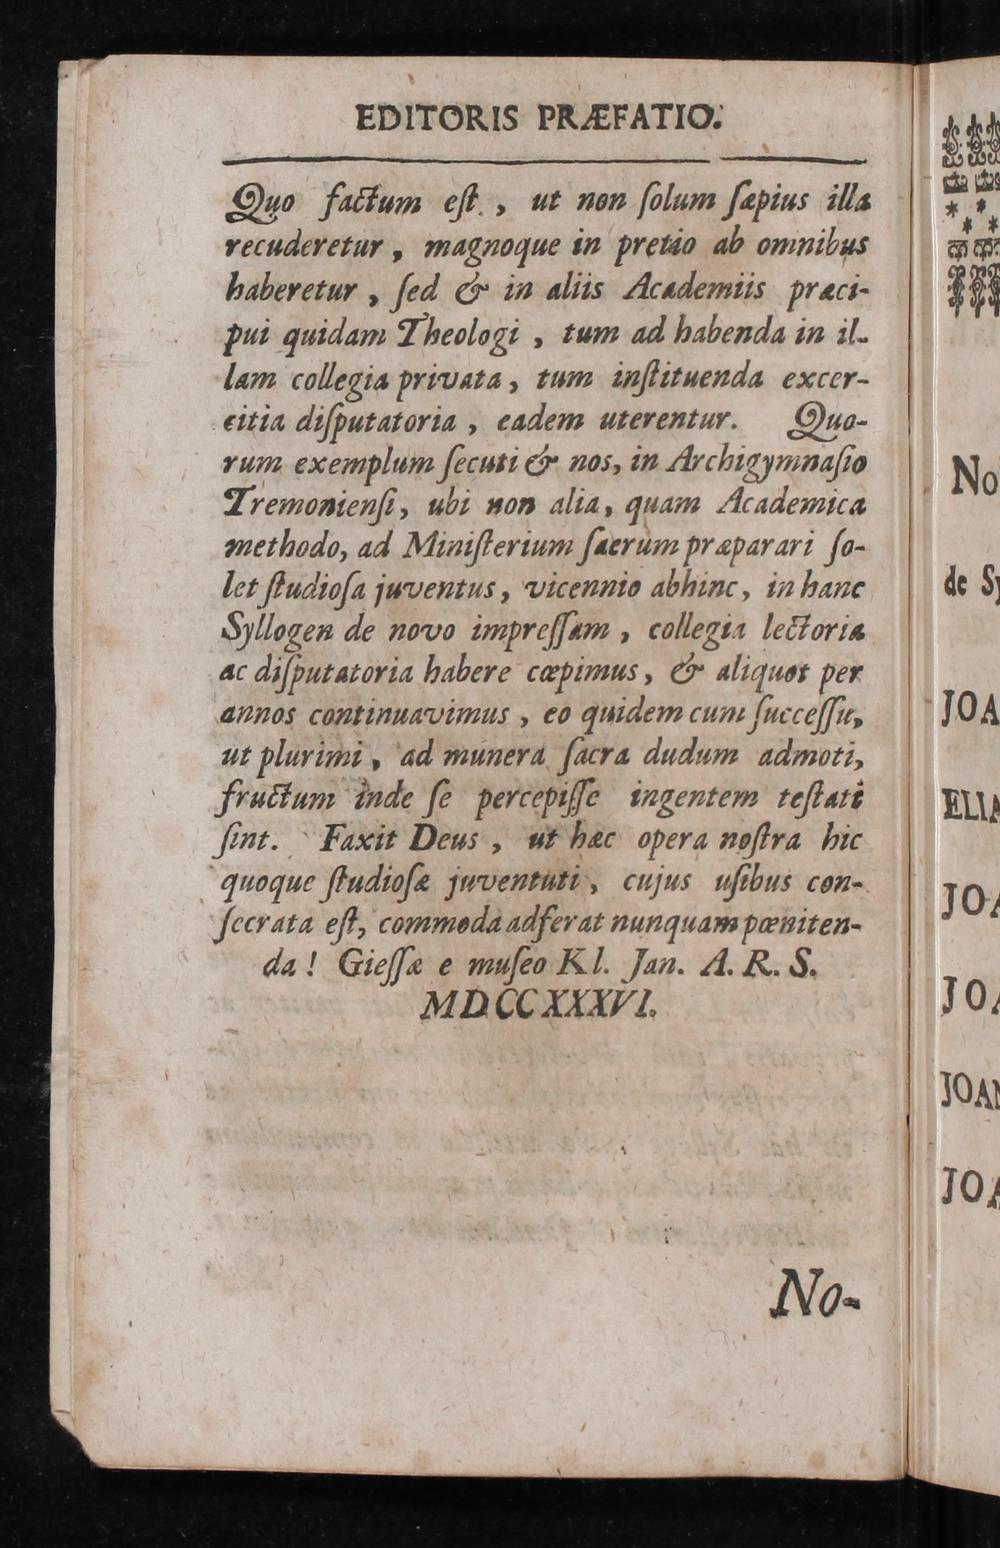 EDITORIS PRÆFATIO.
Quo factum eſt , ut non ſolum ſæpius illa
recuderetur , magnoque in pretio ab omnibus
haberetur , ſed & in aliis Academiis præci-
pui quidam Theologi , tum ad habenda in il-
lam collegia privata , tum inſtituenda excer-
citia diſputatoria , eadem uterentur. Quo-
rum exemplum ſecuti & nos, in Archigymnaſio
Tremonienſi, ubi non alia, quam Academica
methodo, ad Miniſterium ſacrum præparari ſo-
let ſtudioſa juventus, vicennio abhinc, in hanc
Syllogen de novo impreſſam , collegia lectoria
ac diſputatoria habere cœpimus, & aliquot per
annos continuavimus , eo quidem cum ſucceſſu,
ut plurimi , ad munera ſacra dudum admoti,
fructum inde ſe percepiſſe ingentem teſtati
ſint. Faxit Deus , ut hæc opera noſtra hic
quoque ſtudioſæ juventuti , cujus uſibus con-
ſecrata eſt, commoda adferat nunquam pœniten-
da ! Gieſſæ e muſeo Kl. Jan. A. R. S.
MDCCXXXVI.
No-
No
de Sy
JOA
ELIA
JOA
JOA
JOAN
JOA